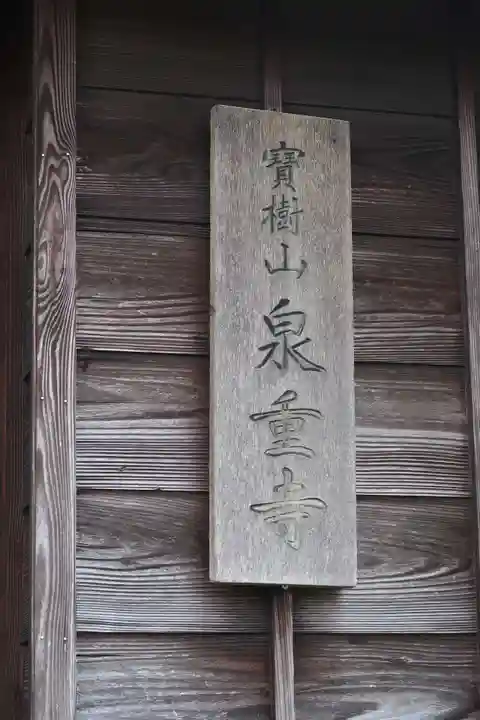 寶樹山泉重寺